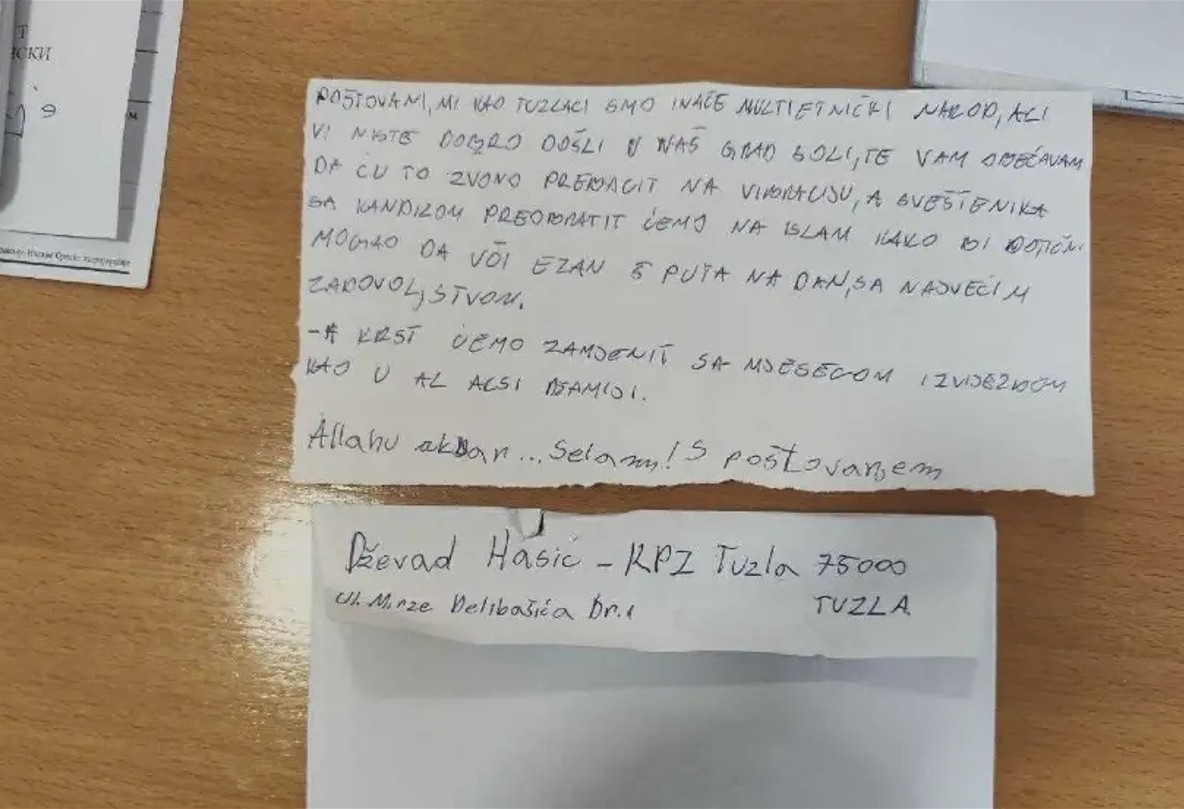 Т
СКИ
9
м
POŠTOVANI, MI KAO TUZLACI SMO INAČE MULTIETNIČKI NAROD, ALI
VI NISTE DOBRO DOŠLI U NAŠ GRAD SOLI, TE VAM OBEĆAVAM
DA ĆU TO ZVONO PREBACIT NA VIBRACIJU, A SVEŠTENIKA
SA KANDILOM PREOBRATIT ĆEMO NA ISLAM KAKO BI DOTIČNI
MOGAO DA UČI EZAN 5 PUTA NA DAN, SA NAJVEĆIM
ZADOVOLJSTVOM.
- A KRST ĆEMO ZAMJENIT SA MJESECOM I ZVIJEZDOM
KAO U AL ACSI DŽAMIJI.
Allahu akbar... Selamm! S poštovanjem
Dževad Hasić - KPZ Tuzla 75000
Ul. Mirze Delibašića Br. 1 TUZLA